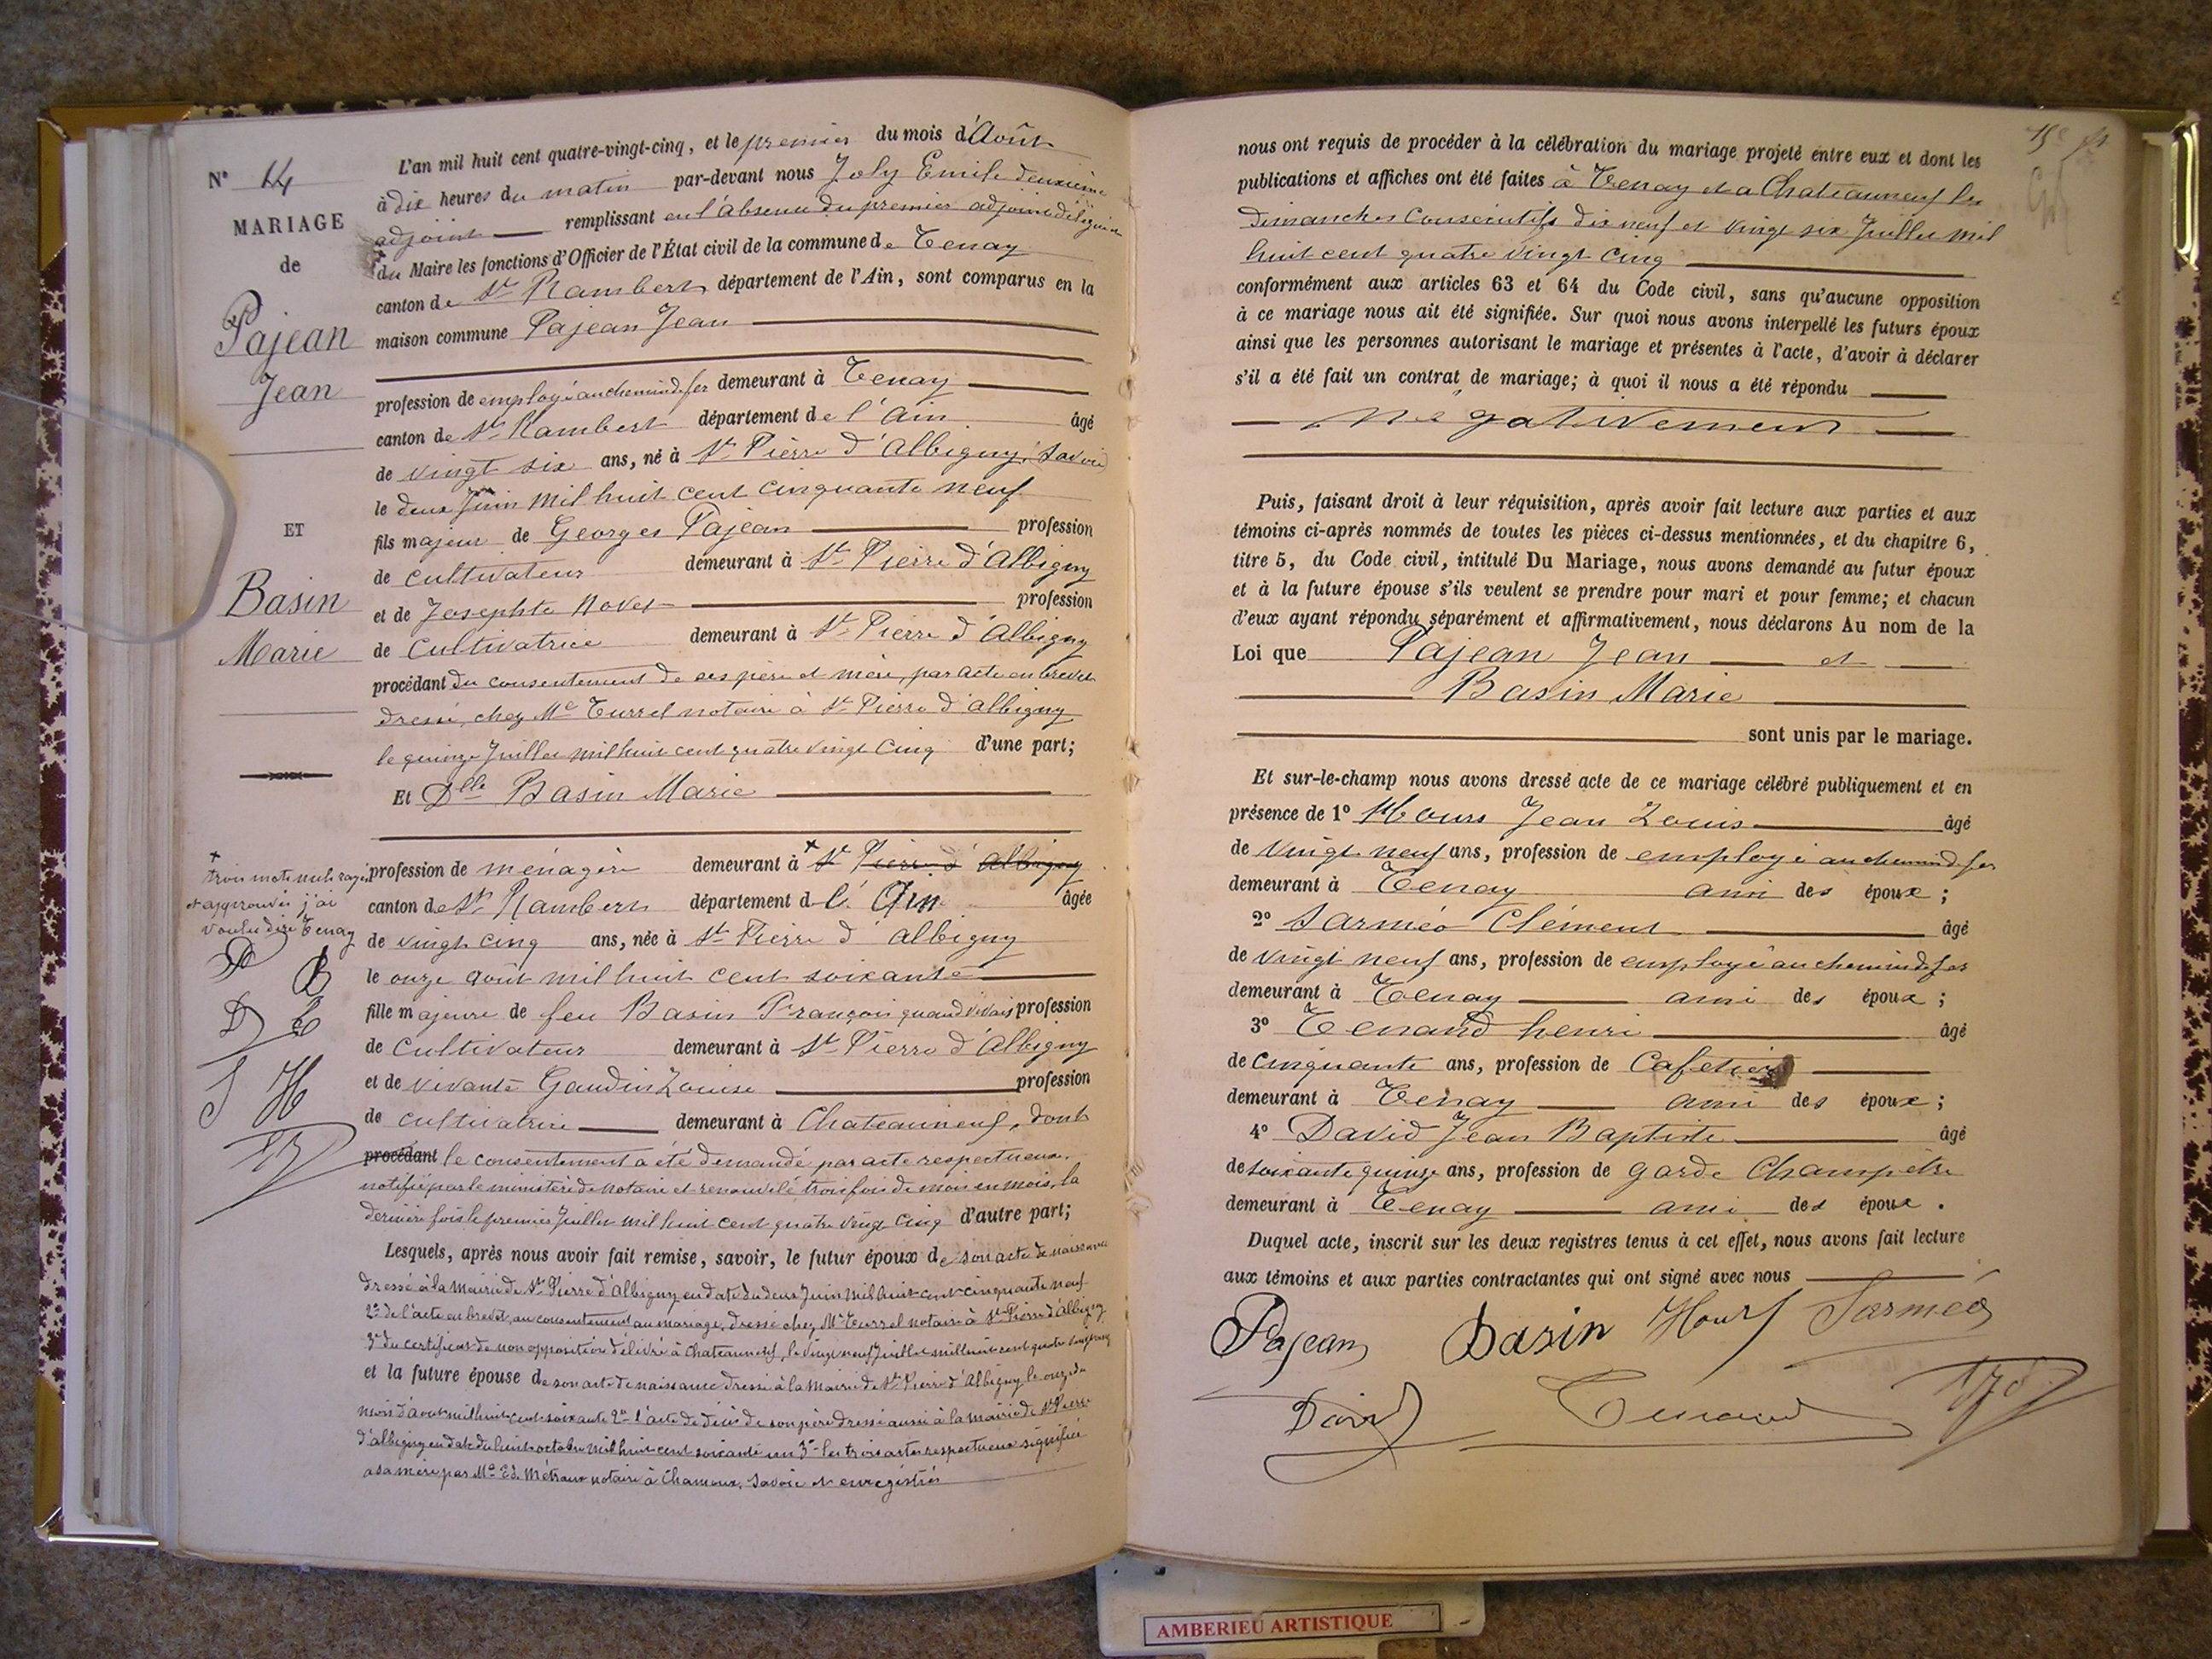 N° 14
MARIAGE
de
Pajean
Jean
ET
Basin
Marie
+
trois mots nuls rayés
et approuvés j'ai
voulu dire Tenay
P B
D T
S H
L'an mil huit cent quatre-vingt-cinq, et le premier du mois d'Août
à dix heures du matin par-devant nous Joly Emile deuxième
adjoint remplissant en l'absence du premier adjoint délégué
du Maire les fonctions d'Officier de l'État civil de la commune de Tenay
canton de St Rambert département de l'Ain, sont comparus en la
maison commune Pajean Jean
profession de employé au chemin de fer demeurant à Tenay
canton de St Rambert département de l'Ain âgé
de vingt six ans, né à St Pierre d'Albigny, Savoie
le deux Juin mil huit cent cinquante neuf
fils majeur de Georges Pajean profession
de cultivateur demeurant à St Pierre d'Albigny
et de Josephte Novet profession
de Cultivatrice demeurant à St Pierre d'Albigny
procédant du consentement de ses père et mère, par acte en brevet
dressé, chez Me Turrel notaire à St Pierre d'Albigny
le quinze Juillet mil huit cent quatre vingt cinq d'une part;
Et Dlle Basin Marie
profession de ménagère demeurant à + St Pierre d'Albigny
canton de St Rambert département de l'Ain âgée
de vingt cinq ans, née à St Pierre d'Albigny
le onze août mil huit cent soixante
fille majeure de feu Basin François quand vivait profession
de Cultivateur demeurant à St Pierre d'Albigny
et de vivante Gaudin Louise profession
de cultivatrice demeurant à Chateauneuf, dont
procédant le consentement a été demandé par acte respectueux
notifié par le ministère de notaire et renouvelé trois fois de mois en mois, la
dernière fois le premier Juillet mil huit cent quatre vingt cinq d'autre part;
Lesquels, après nous avoir fait remise, savoir, le futur époux de son acte de naissance
dressé à la mairie de St Pierre d'Albigny en date du deux Juin mil huit cent cinquante neuf
2° de l'acte en brevet, au consentement au mariage, dressé chez Me Turrel notaire à St Pierre d'Albigny
3° du certificat de non opposition délivré à Chateauneuf, le vingt neuf Juillet mil huit cent quatre vingt cinq
et la future épouse de son acte de naissance dressé à la Mairie de St Pierre d'Albigny le onze du
mois d'aout mil huit cent soixante 2° l'acte de décès de son père dressé aussi à la mairie de St Pierre
d'Albigny en date du huit octobre mil huit cent soixante un 3° les trois actes respectueux signifiés
a sa mère par Me Ed. Métraux notaire à Chamoux, Savoie et enregistrés
15
nous ont requis de procéder à la célébration du mariage projeté entre eux et dont les
publications et affiches ont été faites à Tenay et à Chateauneuf les
dimanches consécutifs dix neuf et vingt six Juillet mil
huit cent quatre vingt cinq
conformément aux articles 63 et 64 du Code civil, sans qu'aucune opposition
à ce mariage nous ait été signifiée. Sur quoi nous avons interpellé les futurs époux
ainsi que les personnes autorisant le mariage et présentes à l'acte, d'avoir à déclarer
s'il a été fait un contrat de mariage; à quoi il nous a été répondu
négativement
Puis, faisant droit à leur réquisition, après avoir fait lecture aux parties et aux
témoins ci-après nommés de toutes les pièces ci-dessus mentionnées, et du chapitre 6,
titre 5, du Code civil, intitulé Du Mariage, nous avons demandé au futur époux
et à la future épouse s'ils veulent se prendre pour mari et pour femme; et chacun
d'eux ayant répondu séparément et affirmativement, nous déclarons Au nom de la
Loi que Pajean Jean et
Basin Marie
sont unis par le mariage.
Et sur-le-champ nous avons dressé acte de ce mariage célébré publiquement et en
présence de 1° Hours Jean Louis âgé
de vingt neuf ans, profession de employé au chemin de fer
demeurant à Tenay ami des époux;
2° Sarméo Clément âgé
de vingt neuf ans, profession de employé au chemin de fer
demeurant à Tenay ami des époux;
3° Tenand henri âgé
de cinquante ans, profession de Cafetier
demeurant à Tenay ami des époux;
4° David Jean Baptiste âgé
de soixante quinze ans, profession de garde Champêtre
demeurant à Tenay ami des époux.
Duquel acte, inscrit sur les deux registres tenus à cet effet, nous avons fait lecture
aux témoins et aux parties contractantes qui ont signé avec nous
Pajean Basin Hours Sarméo
David Tenand
AMBERIEU ARTISTIQUE